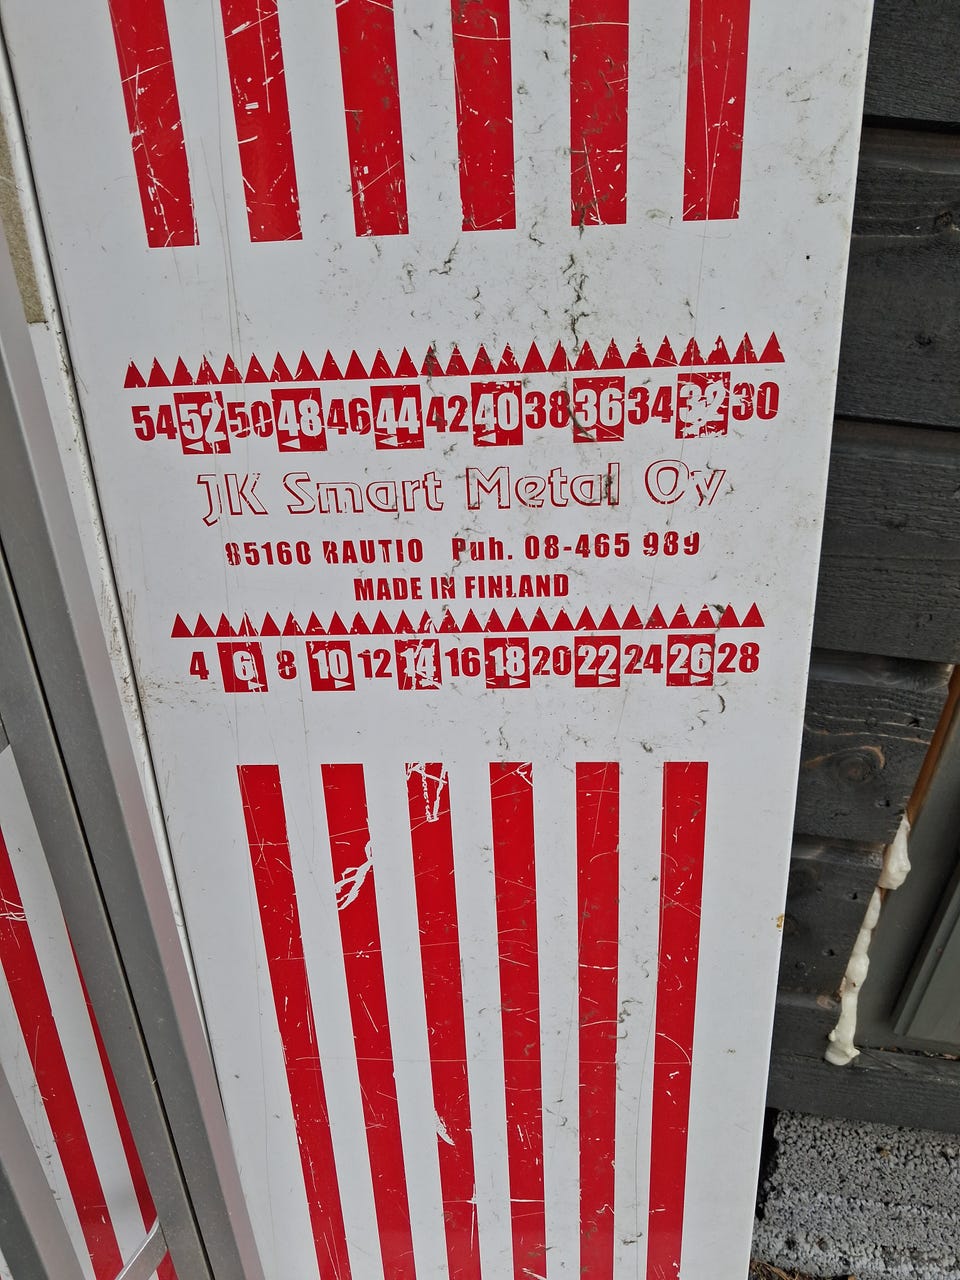 54 52 50 48 46 44 42 40 38 36 34 32 30
JK Smart Metal Oy
85160 RAUTIO Puh. 08-465 989
MADE IN FINLAND
4 6 8 10 12 14 16 18 20 22 24 26 28